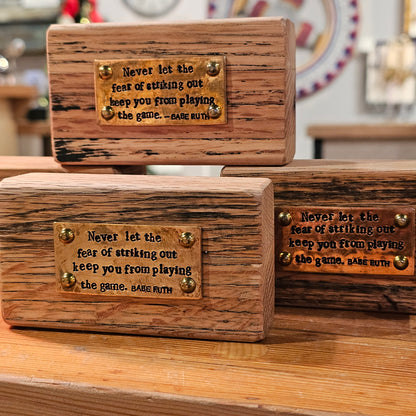 Never let the
fear of striking out
keep you from playing
the game. —BABE RUTH
Never let the
fear of striking out
keep you from playing
the game. BABE RUTH
Never let the
fear of striking out
keep you from playing
the game. BABE RUTH